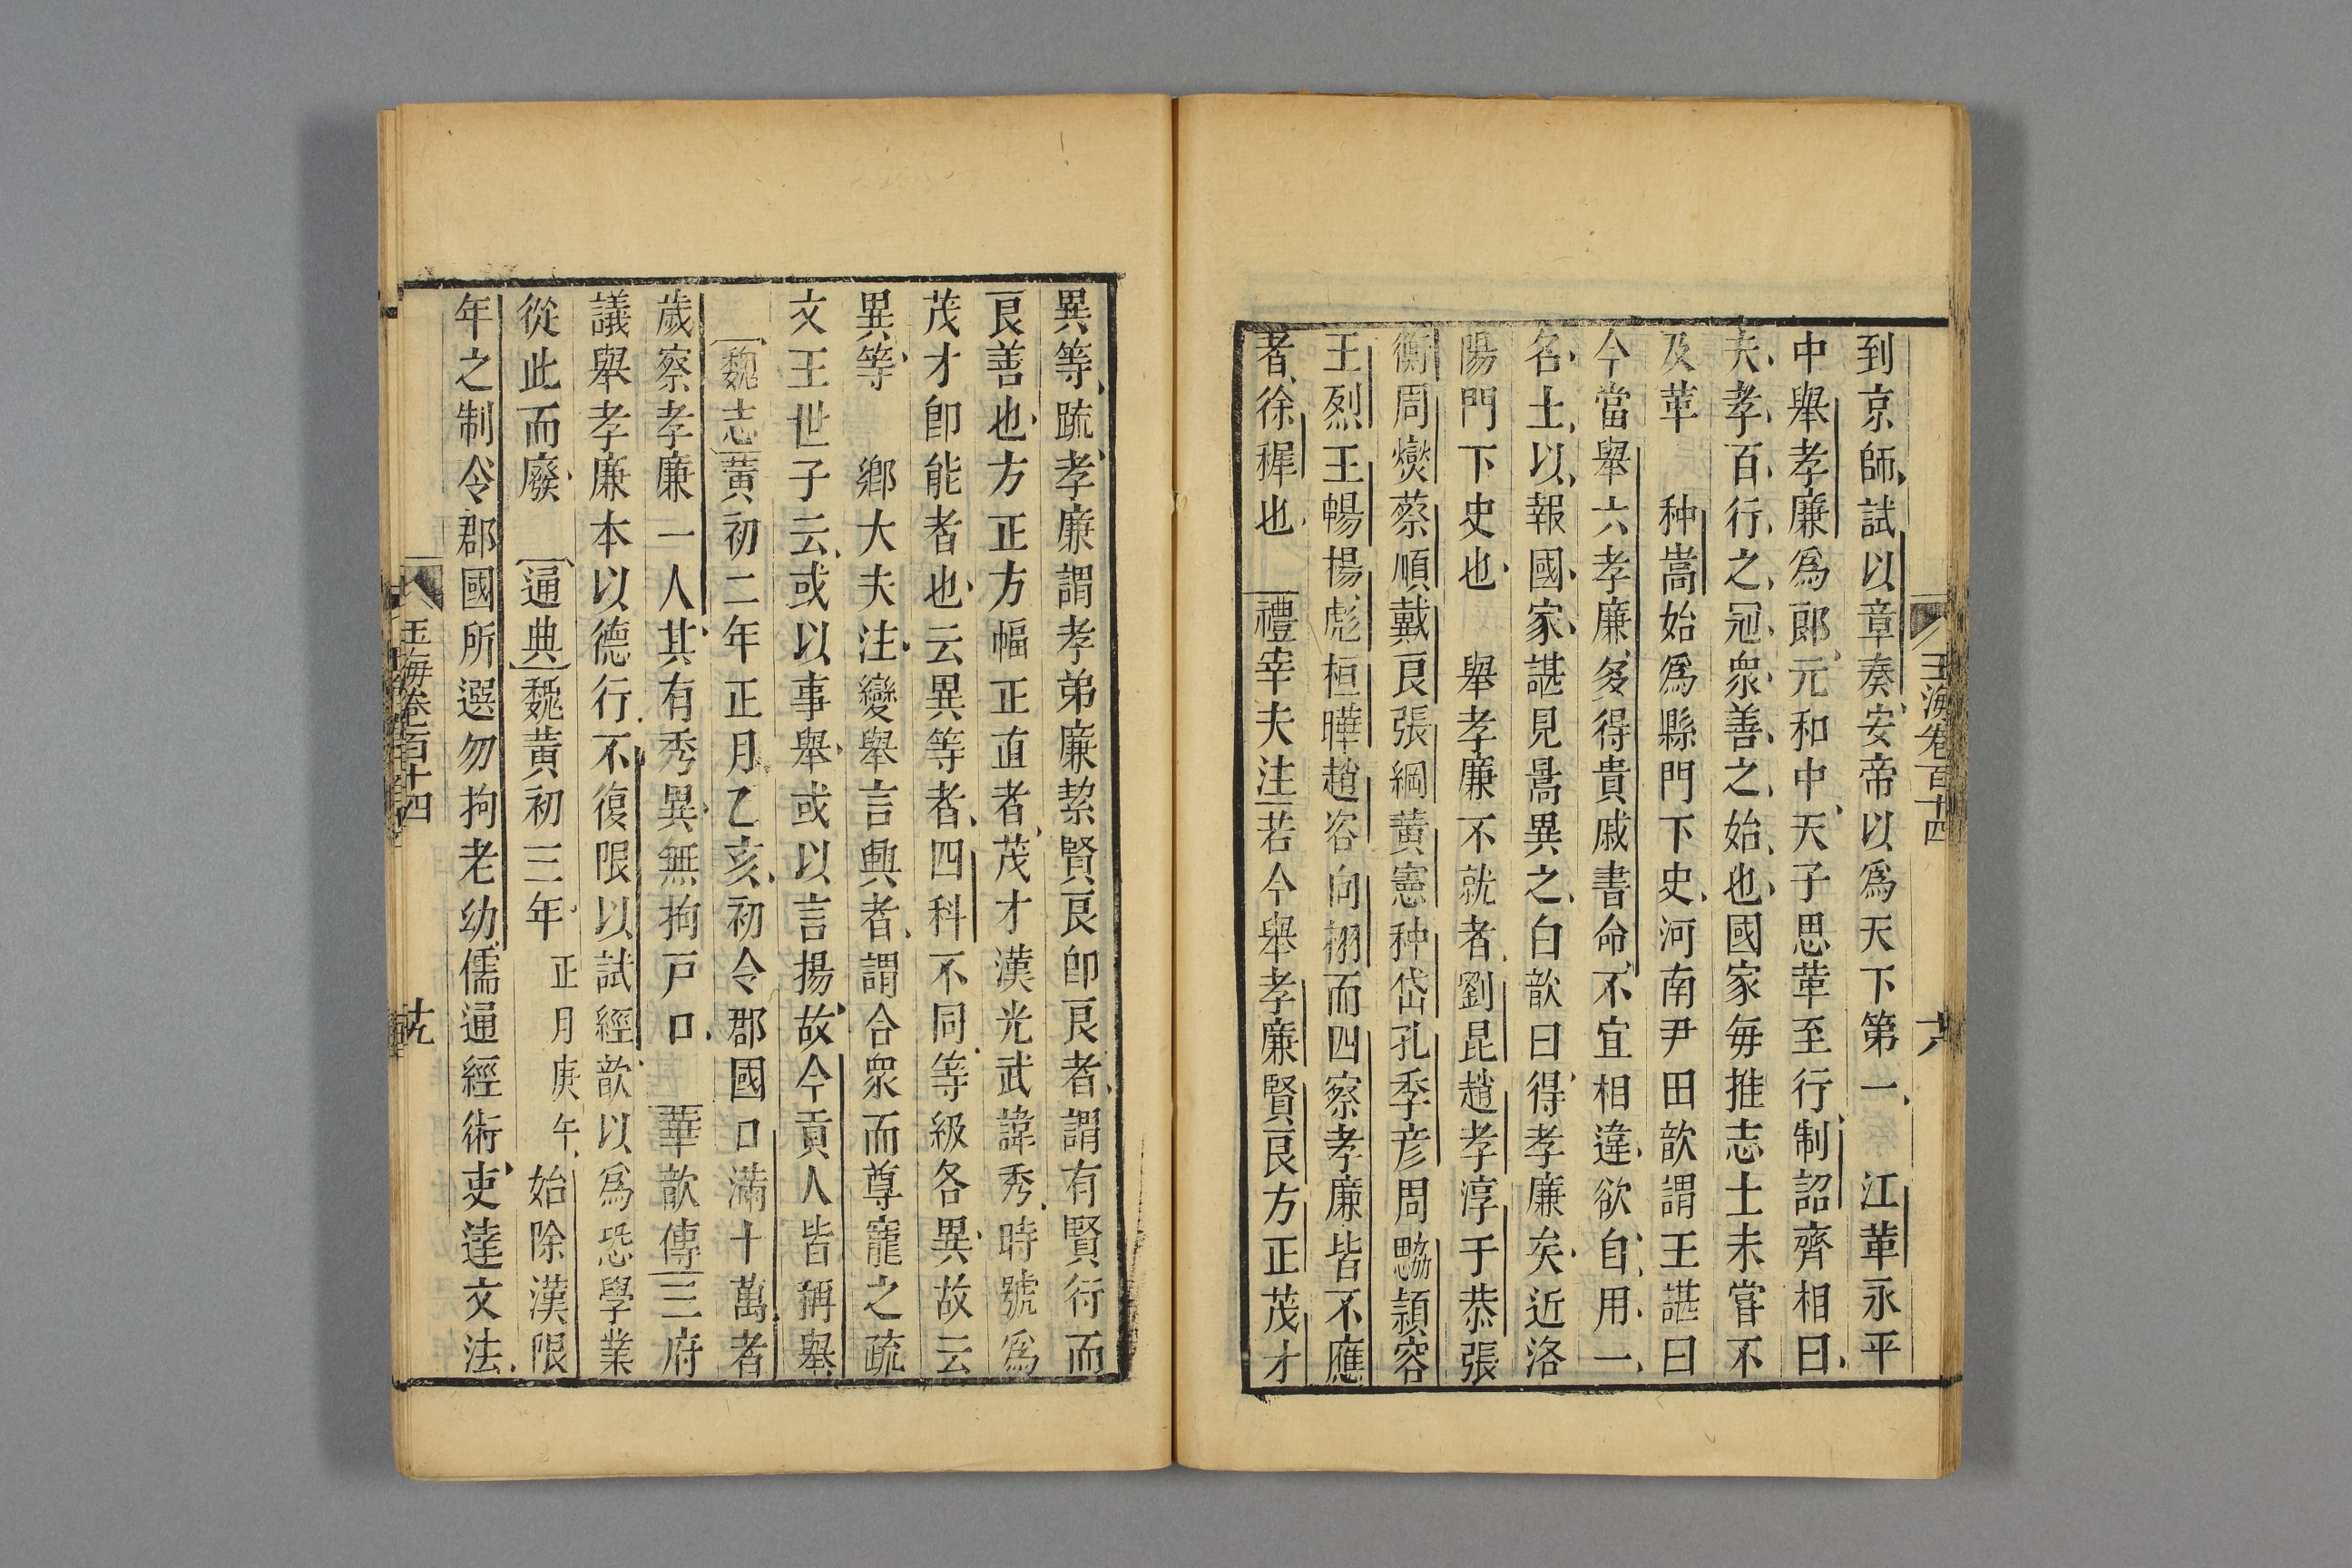 玉海卷百十四
六
到京師試以章奏安帝以爲天下第一 江革永平
中舉孝廉爲郎元和中天子思革至行制詔齊相曰
夫孝百行之冠衆善之始也國家每推志士未嘗不
及革 种嵩始爲縣門下史河南尹田歆謂王諶曰
今當舉六孝廉多得貴戚書命不宜相違欲自用一
名士以報國家諶見暠異之白歆曰得孝廉矣近洛
陽門下史也 舉孝廉不就者劉昆趙孝淳于恭張
衡周燮蔡順戴良張綱黄憲种岱孔季彦周勰頴容
王烈王暢楊彪桓曄趙咨向栩而四察孝廉皆不應
者徐穉也 禮宰夫注若今舉孝廉賢良方正茂才
異等疏孝廉謂孝弟廉絜賢良即良者謂有賢行而
良善也方正方幅正直者茂才漢光武諱秀時號爲
茂才即能者也云異等者四科不同等級各異故云
異等 鄉大夫注變舉言興者謂合衆而尊寵之疏
文王世子云或以事舉或以言揚故今貢人皆稱舉
魏志黃初二年正月乙亥初令郡國口滿十萬者
歲察孝廉一人其有秀異無拘戸口 華歆傳三府
議舉孝廉本以德行不復限以試經歆以爲恐學業
從此而廢 通典魏黄初三年正月庚午始除漢限
年之制令郡國所選勿拘老幼儒通經術吏達文法
玉海卷百十四